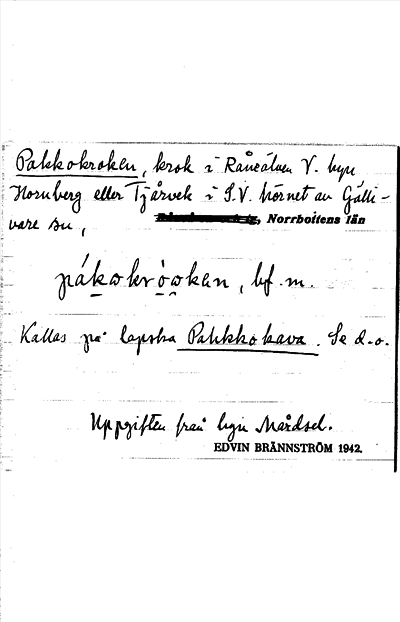 Pakkokroken, krok i Råneälven V. byn
Hornberg eller Tjårvek i S.V. hörnet av Gälli-
vare sn, , Norrbottens län
pákωkrὼωkɐn, bf. m.
Kallas på lapska Pahkkokava. Se d.o.
Uppgiften från byn Mårdsel.
EDVIN BRÄNNSTRÖM 1942.